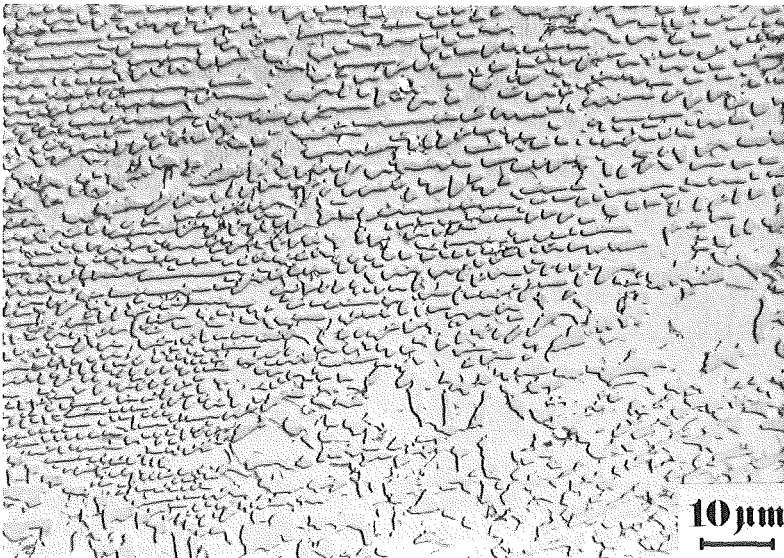 10 µm